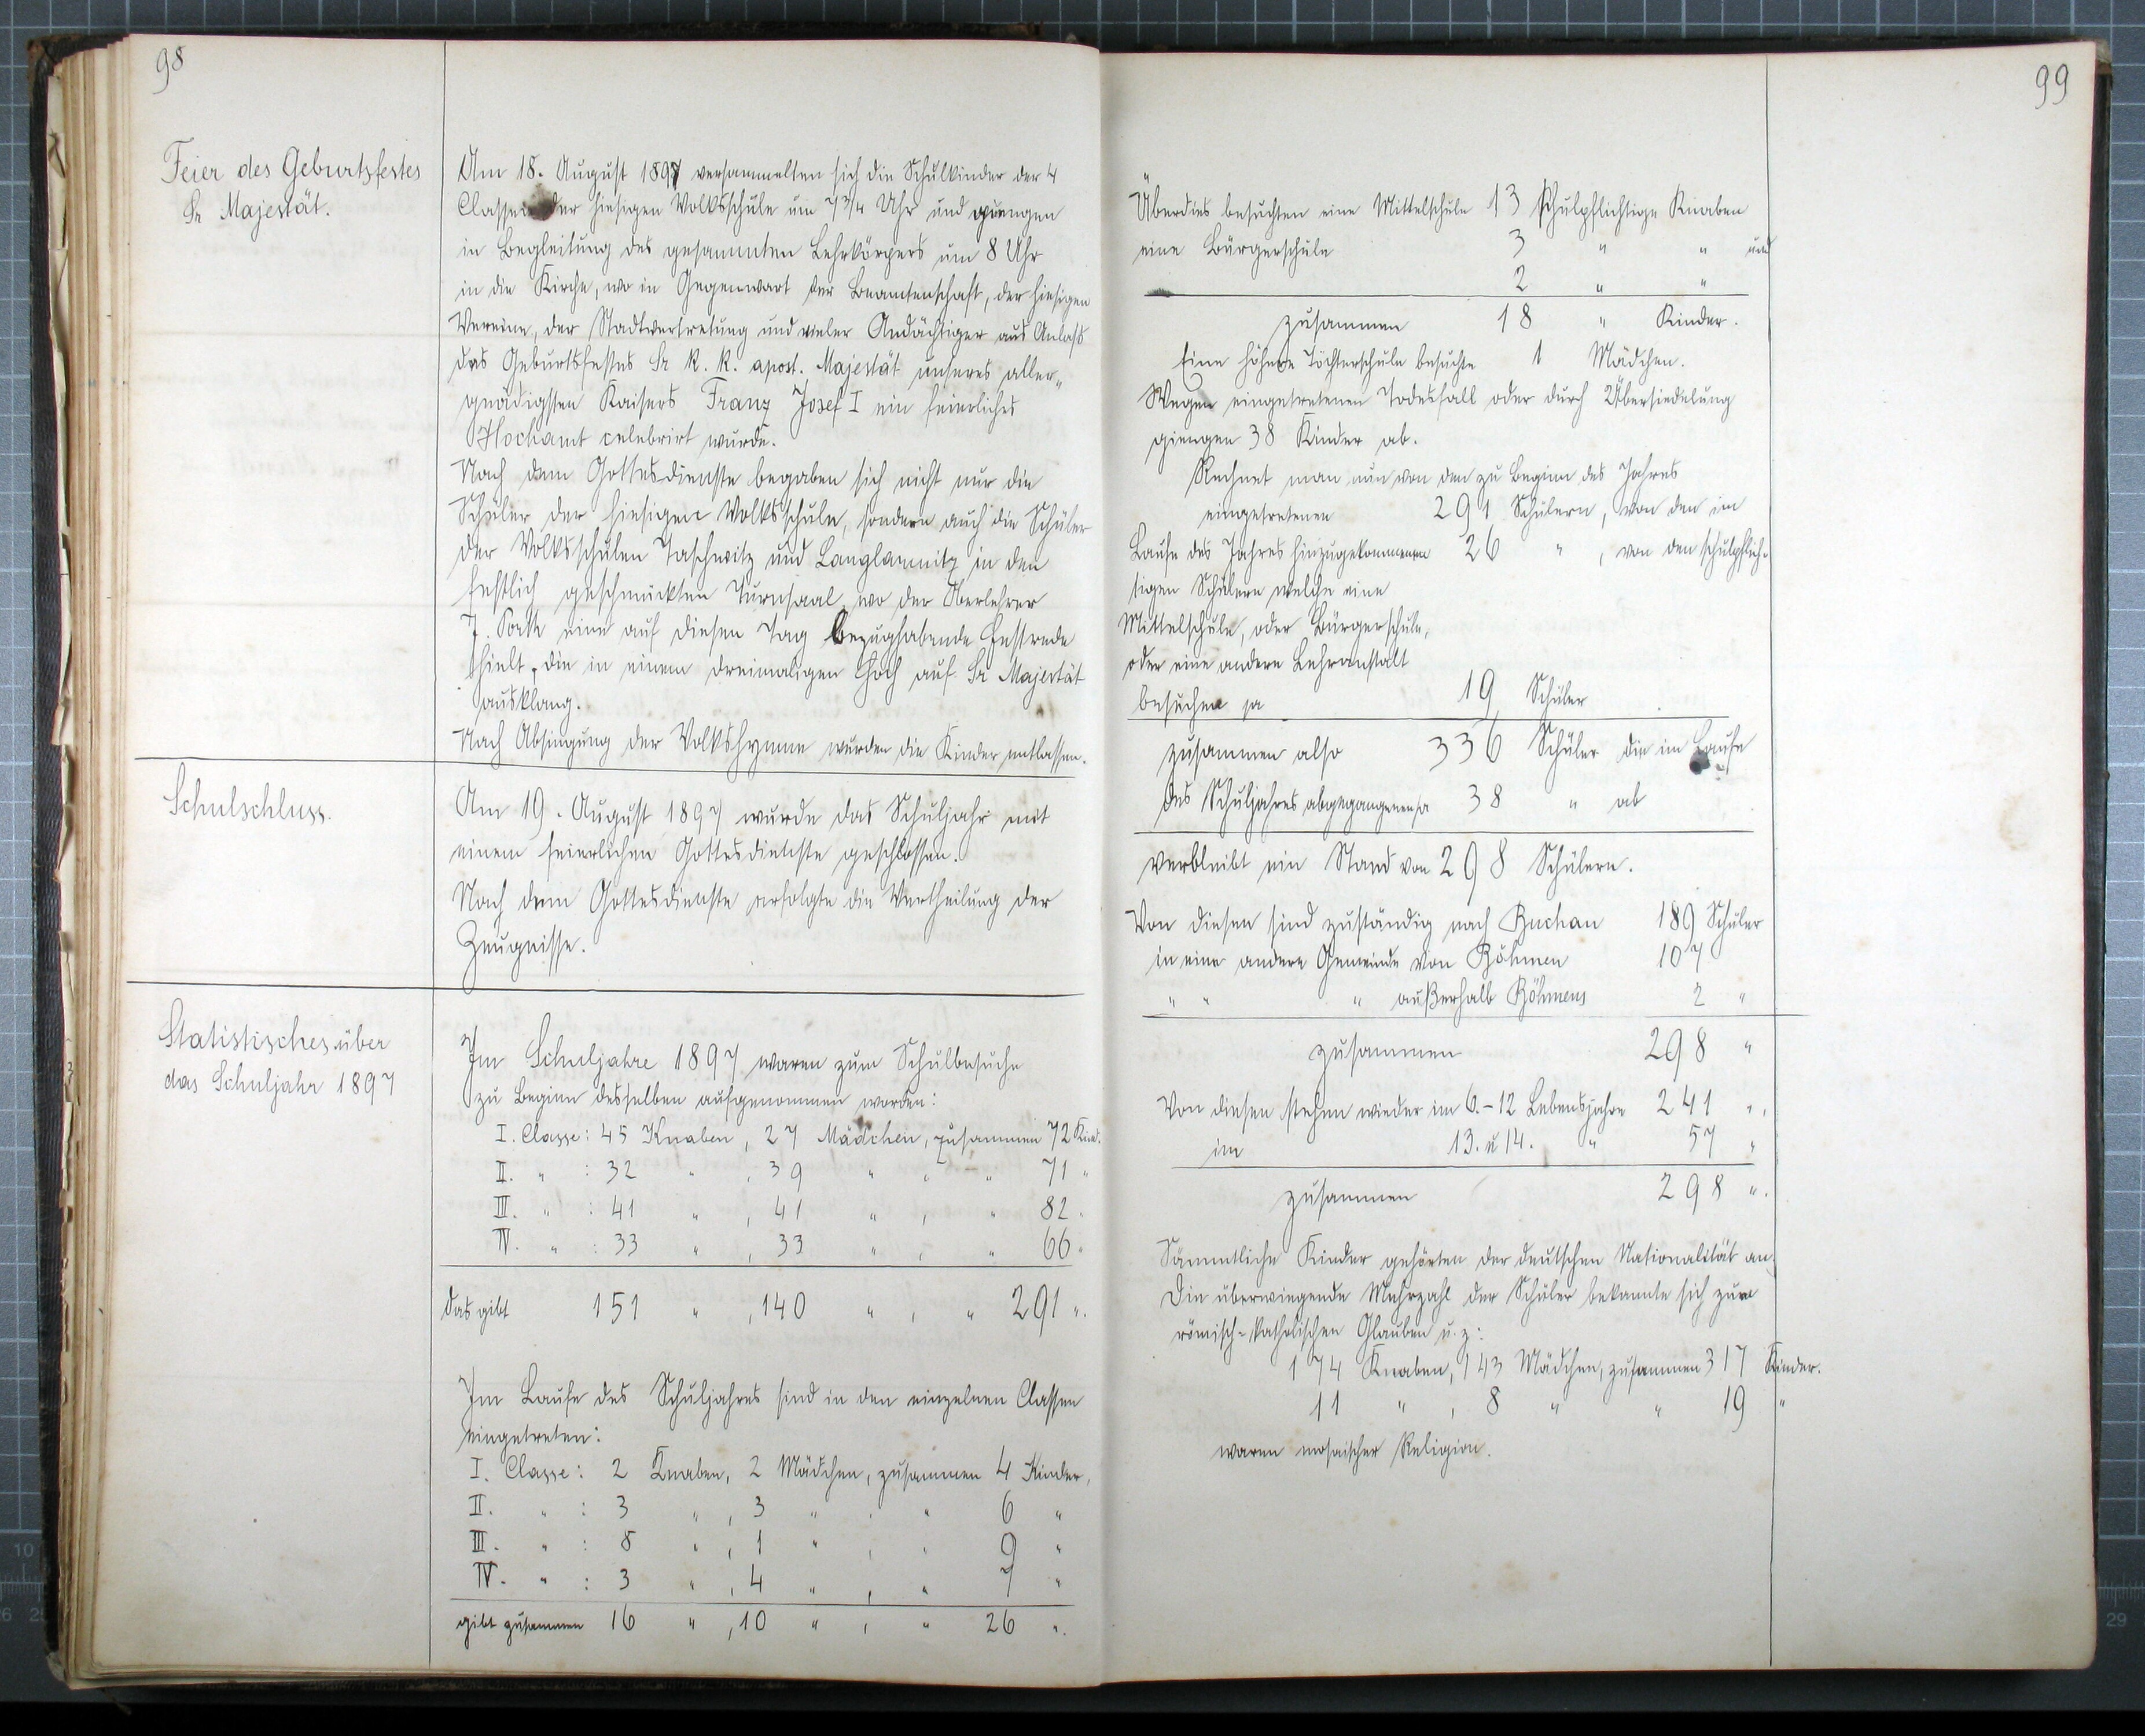 98
Feier des Geburtsfestes
Sr Majestät.
Am 18. August 1897 versammelten sich die Schulkinder der 4
Classen der hiesigen Volksschule um 7 3/4 Uhr und giengen
in Begleitung des gesammten Lehrkörpers um 8 Uhr
in die Kirche, wo in Gegenwart der Beamtenschaft, der hiesigen
Vereine, der Stadtvertretung und vieler Andächtiger aus Anlass
des Geburtsfestes Sr k. k. apost. Majestät unseres aller„
gnädigsten Kaisers Franz Josef I ein feierliches
Hochamt celebrirt wurde.
Nach dem Gottesdienste begaben sich nicht nur die
Schüler der hiesigen Volksschule, sondern auch die Schüler
der Volksschulen Taschwitz und Langlamitz in den
festlich geschmückten Turnsaal, wo der Oberlehrer
J. eine auf diesen Tag bezughabende Festrede
hielt, die in einem dreimaligen Hoch auf Sr Majestät
ausklang.
Nach Absingung der Volkshymne wurden die Kinder entlassen.
Schulschluss.
Am 19. August 1897 wurde das Schuljahr mit
einem feierlichen Gottesdienste geschlossen.
Nach dem Gottesdienste erfolgte die Vertheilung der
Zeugnisse.
Statistisches über
das Schuljahr 1897
Im Schuljahre 1897 waren zum Schulbesuche
zu Beginn desselben aufgenommen worden:
I. Classe: 45 Knaben, 27 Mädchen, zusammen 72 Kind.
II. " : 32 " , 39 " , " 71 "
III. " : 41 " , 41 " , " 82 "
IV. " : 33 " , 33 " , " 66 "
das gibt 151 " , 140 " , " 291 ".
Im Laufe des Schuljahres sind in den einzelnen Classen
eingetreten:
I. Classe: 2 Knaben, 2 Mädchen, zusammen 4 Kinder,
II. " : 3 " , 3 " , " 6 "
III. " : 8 " , 1 " , " 9 "
IV. " : 3 " , 4 " , " 7 "
gibt zusammen 16 " , 10 " , " 26 ".
99
Überdies besuchten eine Mittelschule 13 schulpflichtige Knaben
eine Bürgerschule 3 " " und
2 " "
zusammen 18 " Kinder.
Eine höhere Töchterschule besuchte 1 Mädchen.
Wegen eingetretenen Todesfall oder durch Übersiedelung
giengen 38 Kinder ab.
Rechnet man nun von den zu Beginn des Jahres
eingetretenen 291 Schülern, von den im
Laufe des Jahres hinzugekommenen 26 " , von den schulpflich-
tigen Schülern welche eine
Mittelschule, oder Bürgerschule,
oder eine andere Lehranstalt
besuchen pa 19 Schüler
zusammen also 336 Schüler die im Laufe
des Schuljahres abgegangenen pa 38 " ab
verbleibt ein Stand von 298 Schülern.
Von diesen sind zuständig nach Buchau 189 Schüler
in eine andere Gemeinde von Böhmen 107
" " " außerhalb Böhmens 2 "
zusammen 298 "
Von diesen stehen wieder im 6.-12 Lebensjahre 241 "
im 13. u 14. " 57 "
zusammen 298 ".
Sämmtliche Kinder gehörten der deutschen Nationalität an.
Die überwiegende Mehrzahl der Schüler bekannte sich zum
römisch-katholischen Glauben u. z:
174 Knaben, 143 Mädchen, zusammen 317 Kinder.
11 " , 8 " " 19 "
waren mosaischer Religion.